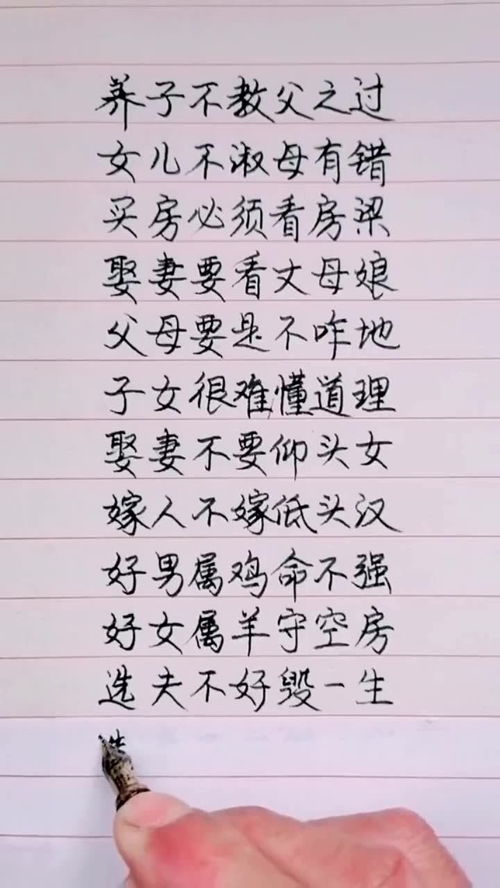 养子不教父之过
女儿不淑母有错
买房必须看房梁
娶妻要看丈母娘
父母要是不咋地
子女很难懂道理
娶妻不要仰头女
嫁人不嫁低头汉
好男属鸡命不强
好女属羊守空房
选夫不好毁一生